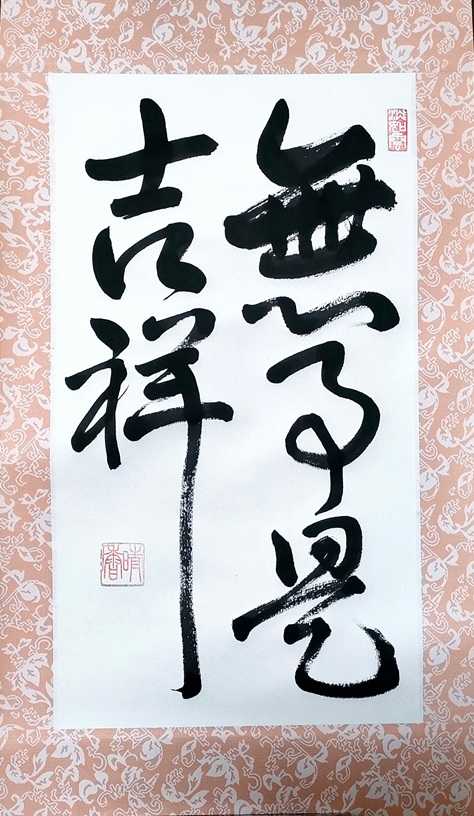 無事是
吉祥